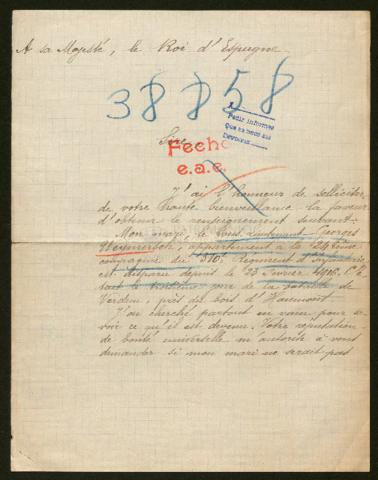 A sa Majesté, le Roi d'Espagne.
38858
Pedir informes
Sire,
Fecho
e.a.e.
J'ai l'honneur de solliciter
de votre Haute bienveillance la faveur
d'obtenir le renseignement suivant.
Mon mari, le Sous Lieutenant Georges
appartenant à la 24ième
compagnie du 310e Régiment d'infanterie
est disparu depuis le 23 Février 1916. C'é
tait le troisième jour de la bataille de
Verdun, près du bois d'Haumont.
J'ai cherché partout en vain pour sa-
voir ce qu'il est devenu. Votre réputation
de bonté universelle m'autorise à vous
demander si mon mari ne serait pas